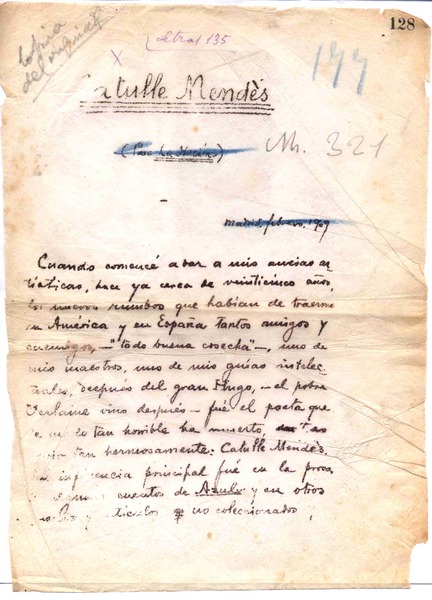 128
Letras 135
copia
del original
X
177
Catulle Mendès
(Para La Nación)
M. 321
Madrid, febrero 1909
Cuando comencé a dar a mis ansias ar
tísticas, hace ya cerca de veinticinco años,
los nuevos rumbos que habían de traerme
en América y en España tantos amigos y
enemigos, – "todo buena cosecha" –, uno de
mis maestros, uno de mis guías intelec-
tuales, después del gran Hugo, – el pobre
Verlaine vino después – fué el poeta que
de modo tan horrible ha muerto,
tan hermosamente: Catulle Mendès.
influencia principal fué en la prosa
cuentos de Azul.. y en otros
y no coleccionados,